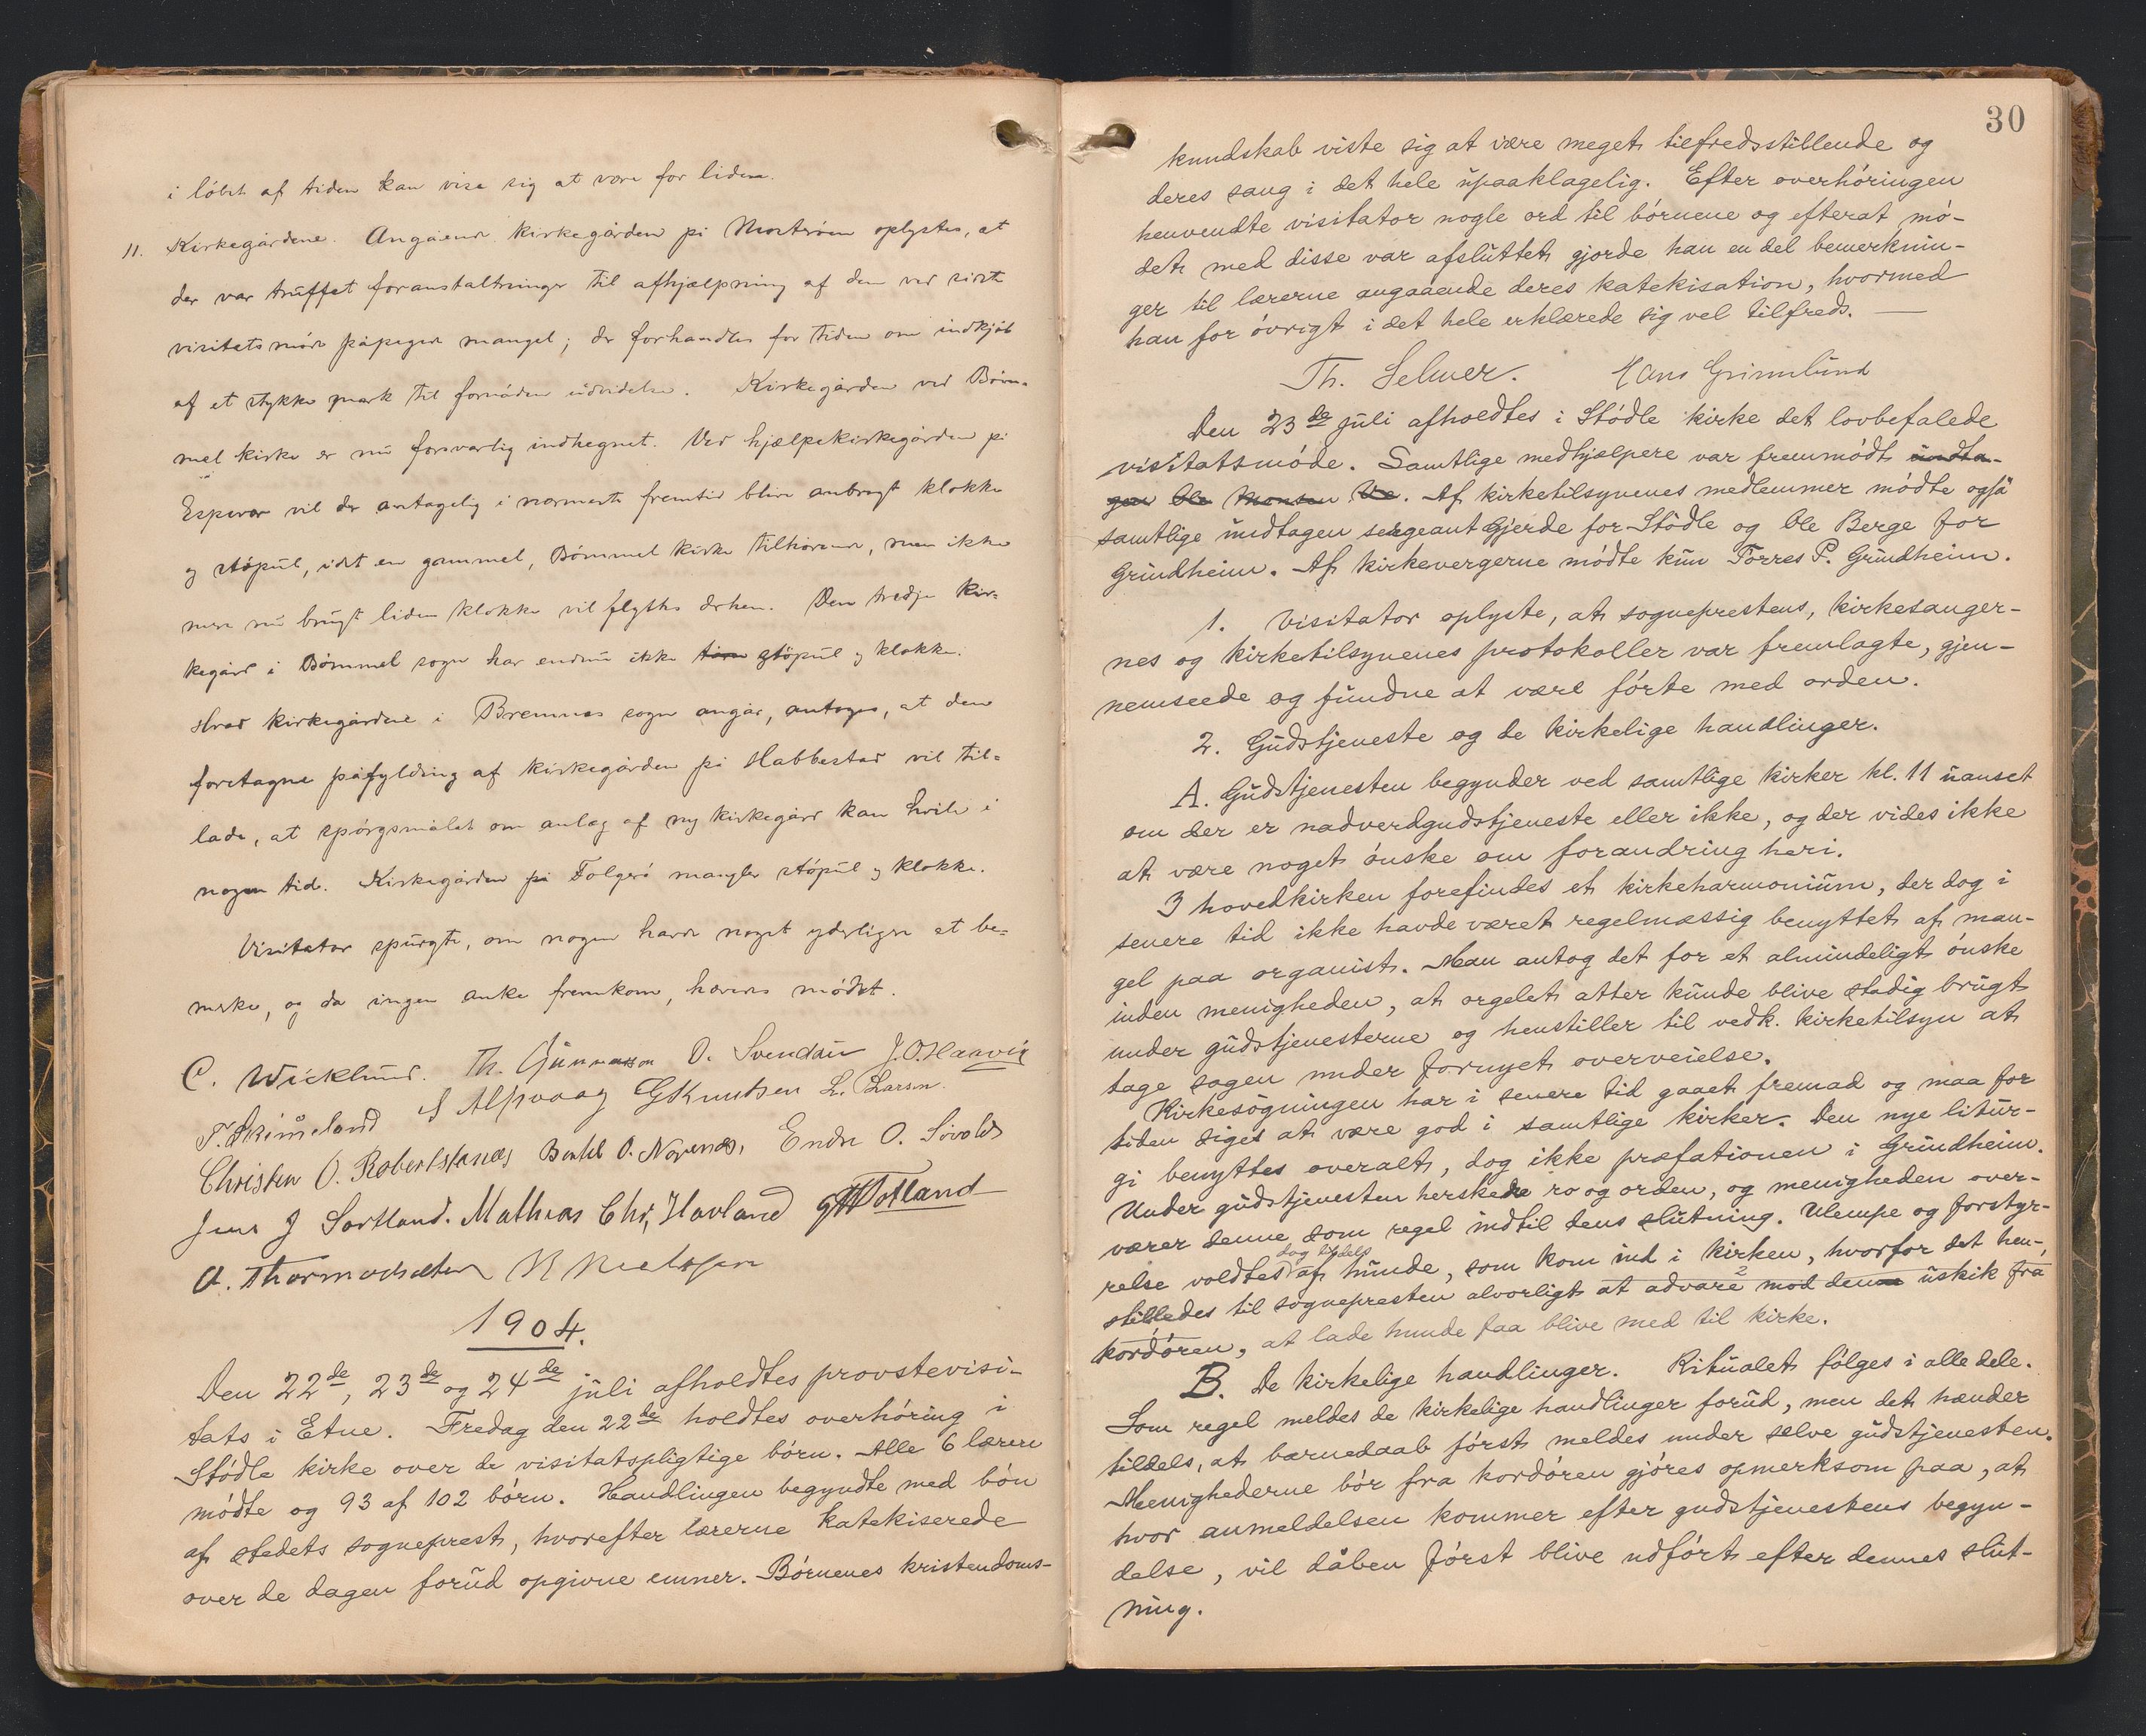 i løbet af tiden kan vise sig at være for liden.
11. Kirkegårdene. Angående kirkegården på Mosterøen oplystes, at
der var truffet foranstaltninger til afhjælpning af den ved sidste
visitatsmøde påpegede mangel; der forhandles for tiden om indkjøb
af et stykke mark til fornøden udvidelse. Kirkegården ved Bøm-
mel kirke er nu forsvarlig indhegnet. Ved hjælpekirkegården på
Espevær vil der antagelig i nærmeste fremtid blive anbragt klokke
og støpul, idet en gammel, Bømmel kirke tilhørende, men ikke
mere nu brugt liden klokke vil flyttes derhen. Den tredje kir-
kegård i Bømmel sogn har endnu ikke støpul og klokke.
Hvad kirkegårdene i Bremnes sogn angår, antages, at den
foretagne påfylding af kirkegården på Habbestad vil til-
lade, at spørgsmålet om anlæg af ny kirkegård kan hvile i
nogen tid. Kirkegården på Folgerø mangler støpul og klokke.
Visitator spurgte, om nogen havde noget yderligere at be-
merke, og da ingen anke fremkom, hævedes mødet.
C. Wicklund. Th. Gunnarsson O. Svendsen J. O. Haavik
T. Skimeland S Alfvaag G Knutsen L. Larsen.
Christen O. Robertstanæs Bertel O. Novenæs, Endre O. Sivolds
Jens J Sortland. Mathias Chr. Havland Totland
A. Thormodsæter N Nielssen
1904.
Den 22de, 23de og 24de juli afholdtes provstevisi-
tats i Etne. Fredag den 22de holdtes overhøring i
Stødle kirke over de visitatspligtige børn. Alle 6 lærere
mødte og 93 af 102 børn. Handlingen begyndte med bøn
af stedets sogneprest, hvorefter lærerne katekiserede
over de dagen forud opgivne emner. Børnenes kristendoms-
30
kundskab viste sig at være meget tilfredsstillende og
deres sang i det hele upaaklagelig. Efter overhøringen
henvendte visitator nogle ord til børnene og efterat mø-
det med disse var afsluttet gjorde han en del bemerknin-
ger til lærerne angaaende deres katekisation, hvormed
han for øvrigt i det hele erklærede sig vel tilfreds.
Th. Selmer. Hans Grimnlund
Den 23de juli afholdtes i Stødle kirke det lovbefalede
visitatsmøde. Samtlige medhjælpere var fremmødt undta-
gen Ole Monsen Ve. Af kirketilsynenes medlemmer mødte også
samtlige undtagen sergeant Gjerde for Stødle og Ole Berge for
Grindheim. Af kirkevergerne mødte kun Torres P. Grindheim.
1. Visitator oplyste, at sogneprestens, kirkesanger-
nes og kirketilsynenes protokoller var fremlagte, gjen-
nemseede og fundne at være førte med orden.
2. Gudstjeneste og de kirkelige handlinger.
A. Gudstjenesten begynder ved samtlige kirker kl. 11 uanset
om der er nadverdgudstjeneste eller ikke, og der vides ikke
at være noget ønske om forandring heri.
I hovedkirken forefindes et kirkeharmonium, der dog i
senere tid ikke havde været regelmæssig benyttet af man-
gel paa organist. Man antog det for et almindeligt ønske
inden menigheden, at orgelet atter kunde blive stadig brugt
under gudstjenesterne og henstiller til vedk. kirketilsyn at
tage sagen under fornyet overveielse.
Kirkesøgningen har i senere tid gaaet fremad og maa for
tiden siges at være god i samtlige kirker. Den nye litur-
gi benyttes overalt, dog ikke præfationen i Grindheim.
Under gudstjenesten herskede ro og orden, og menigheden over-
værer denne som regel indtil dens slutning. Ulempe og forstyr-
relse voldtes dog tildels af hunde, som kom ind i kirken, hvorfor det hen-
stilledes til sognepresten alvorligt at advare mod den uskik fra
kordøren, at lade hunde faa blive med til kirke.
B. De kirkelige handlinger. Ritualet følges i alle dele.
Som regel meldes de kirkelige handlinger forud, men det hænder
tildels, at barnedaab først meldes under selve gudstjenesten.
Menighederne bør fra kordøren gjøres opmerksom paa, at
hvor anmeldelsen kommer efter gudstjenestens begyn-
delse, vil dåben først blive udført efter dennes slut-
ning.